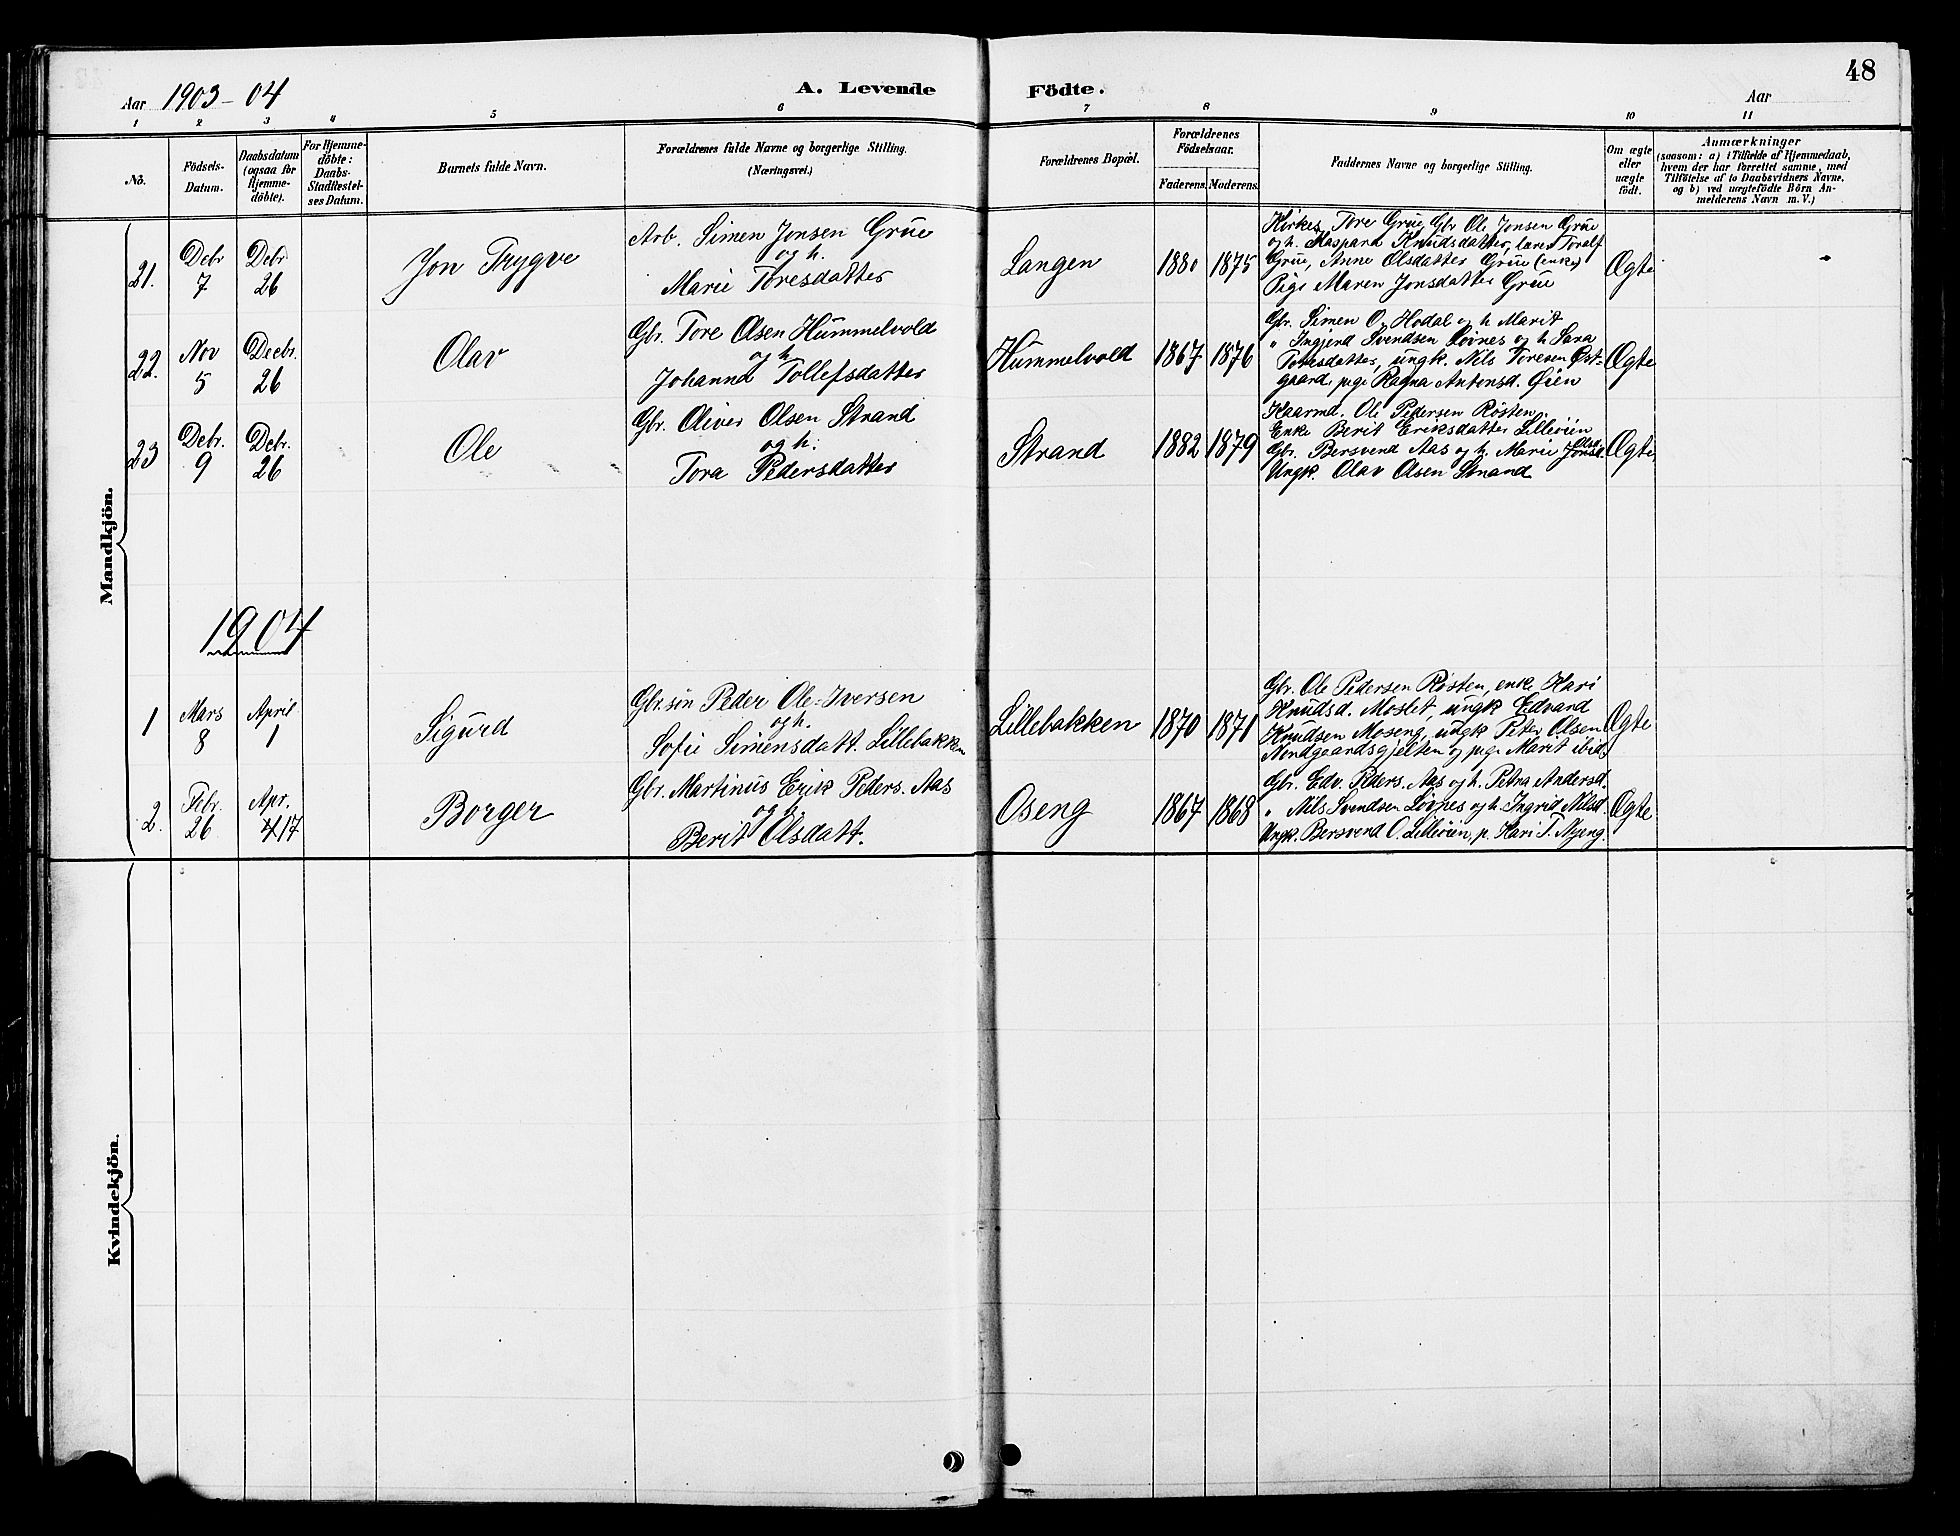 48
Aar 1903-04
A. Levende Födte.
Aar
1 2 3 4 5 6 7 8 9 10 11
No.
Födsels-
Datum.
Daabsdatum
(ogsaa for
Hjemme-
döbte).
For Hjemme-
döbte:
Daabs-
Stadfæstel-
ses Datum.
Barnets fulde Navn.
Forældrenes fulde Navne og borgerlige Stilling.
(Næringsvei.)
Forældrenes Bopæl.
Forældrenes
Födselsaar.
Faderens. Moderens.
Faddernes Navne og borgerlige Stilling.
Om ægte
eller
uægte
født.
Anmærkninger
(saasom: a) i Tilfælde af Hjemmedaab,
hvem der har forrettet samme, med
Tilföielse af to Daabsvidners Navne,
og b) ved uægtefödte Börn An-
melderens Navn m. V.)
Mandkjön.
21.
Debr
7
Debr
26
Jon Trygve
Arb. Simen Jonsen Grue
og h.
Marie Toresdatter
Langen
1880 1875
Kirkes. Tore Grue Gbr Ole Jonsen Grue
og h. Kaspara Knudsdatter, lærer Toralf
Grue, Anne Olsdatter Grue (enke)
Pige Maren Jonsdatter Grue
Ægte
22.
Nov
5
Decbr.
26
Olav
Gbr. Tore Olsen Hummelvold
og h
Johanna Tollefsdatter
Hummelvold
1867 1876
Gbr. Simen O. Hodal og h Marit
" Ingjerd Svendsen Lövnes og h. Sara
Petersdatter, ungk. Nils Toresen Øst-
gaard, pige Ragna Antonsd. Øien
Ægte
23
Debr.
9
Debr.
26
Ole
Gbr. Oliver Olsen Strand
og h.
Tora Pedersdatter
Strand
1882 1879
Kaarmd. Ole Pedersen Røsten.
Enke Berit Eriksdatter Lilleøien
Gbr. Bersvend Aas og h. Marie Olsd.
Ungk. Olav Olsen Strand
Ægte
1904
1
Mars
8
April
1
Sigurd
Gbr.søn Peder Ole-Iversen
og h.
Sofie Simensdatt. Lillebakken
Lillebakken
1870 1871
Gbr. Ole Pedersen Røsten, enke Kari
Knudsd. Moslet, ungk Edvard
Knudsen Moseng, ungk Peter Olsen
Nordgaardsgjelten og pige Marit ibid.
Ægte
2.
Febr.
26
Apr.
4 17
Borger
Gbr. Martinus Erik Peders. Aas
og h
Berit Olsdatt.
Oseng
1867 1868
Gbr. Edv. Peders. Aas og h. Petra Andersd.
" Nils Svendsen Løvnes og h. Ingrid Nilsd.
Ungk. Bersvend O. Lilleøien, p. Kari T. Nyeng.
Ægte
Kvindekjön.